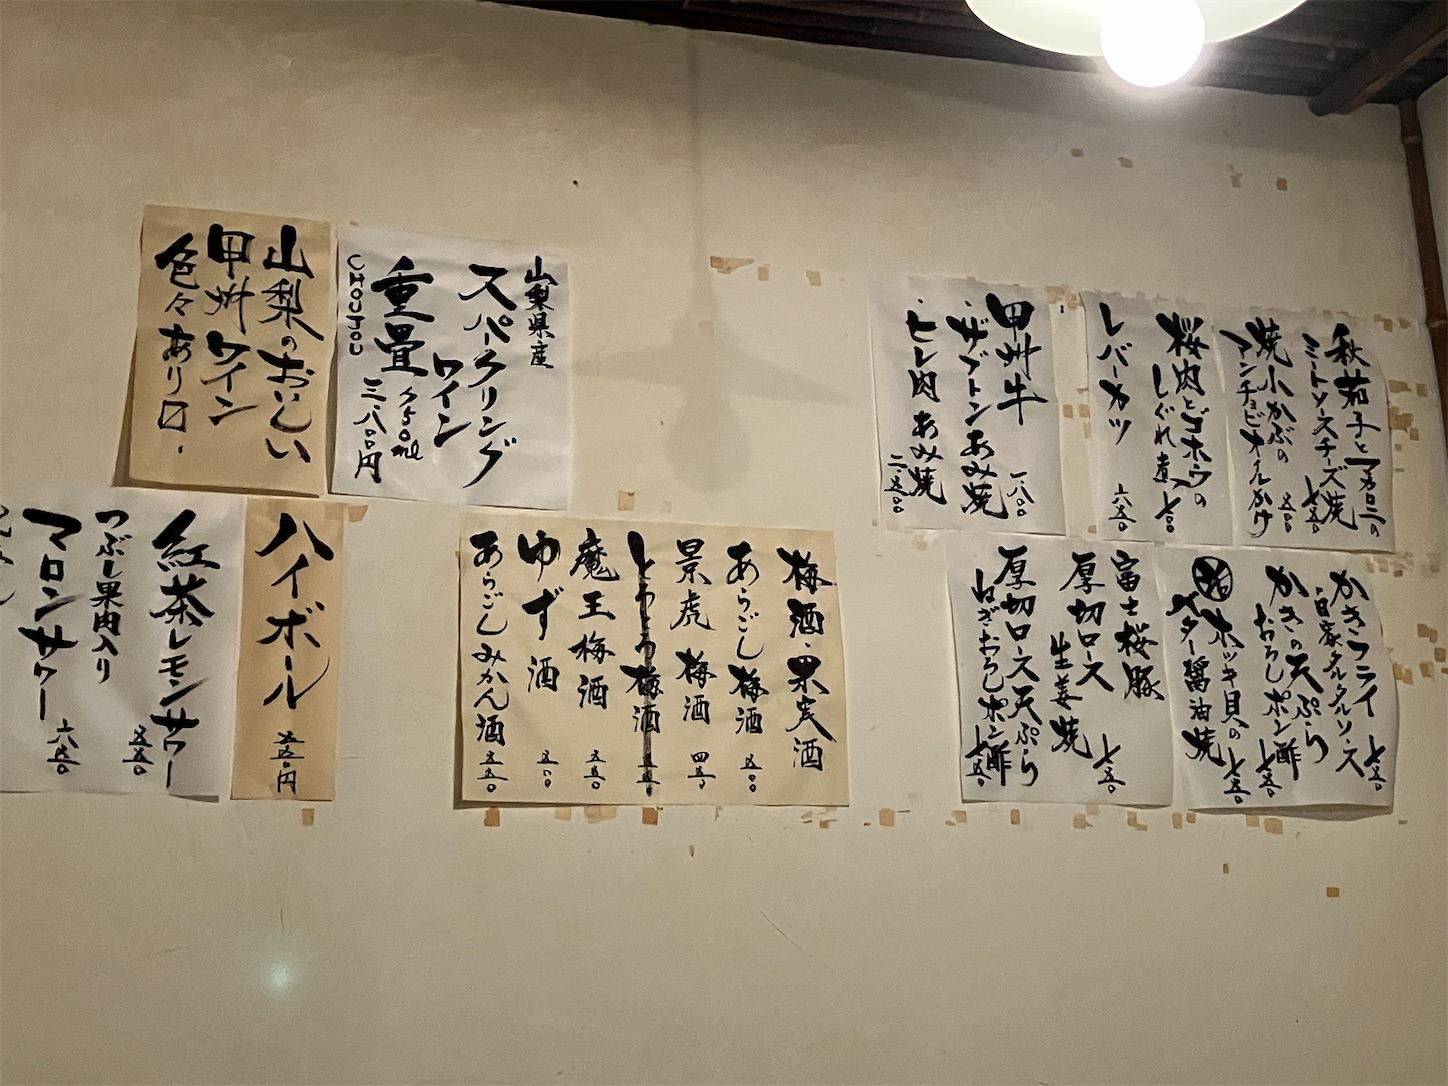 山梨のおいしい
甲州ワイン
色々あり〼.
山梨県産
スパークリング
ワイン
重畳
CHOUJOU
三.八〇〇円
甲州牛
・ザブトンあみ焼
一.八〇〇
・ヒレ肉あみ焼
二.五〇〇
桜肉とゴボウの
しぐれ煮
七〇〇
レバーカツ
六五〇
秋茄子とマカロニの
ミートソースチーズ焼
七五〇
焼小かぶの
アンチョビオイルかけ
五五〇
マロンサワー
六五〇
つぶし果肉入り
紅茶レモンサワー
五五〇
ハイボール
五五〇円
梅酒・果実酒
あらごし梅酒 五〇〇
景虎 梅酒 四五〇
とろとろ梅酒 五五〇
魔王梅酒 五五〇
ゆず酒 五〇〇
あらごしみかん酒 五五〇
富士桜豚
厚切ロース
生姜焼
七五〇
厚切ロース天ぷら
ねぎおろしポン酢
七五〇
かきフライ
自家タルタルソース
七五〇
かきの天ぷら
おろしポン酢
七五〇
ホッキ貝の
バター醤油焼
七五〇